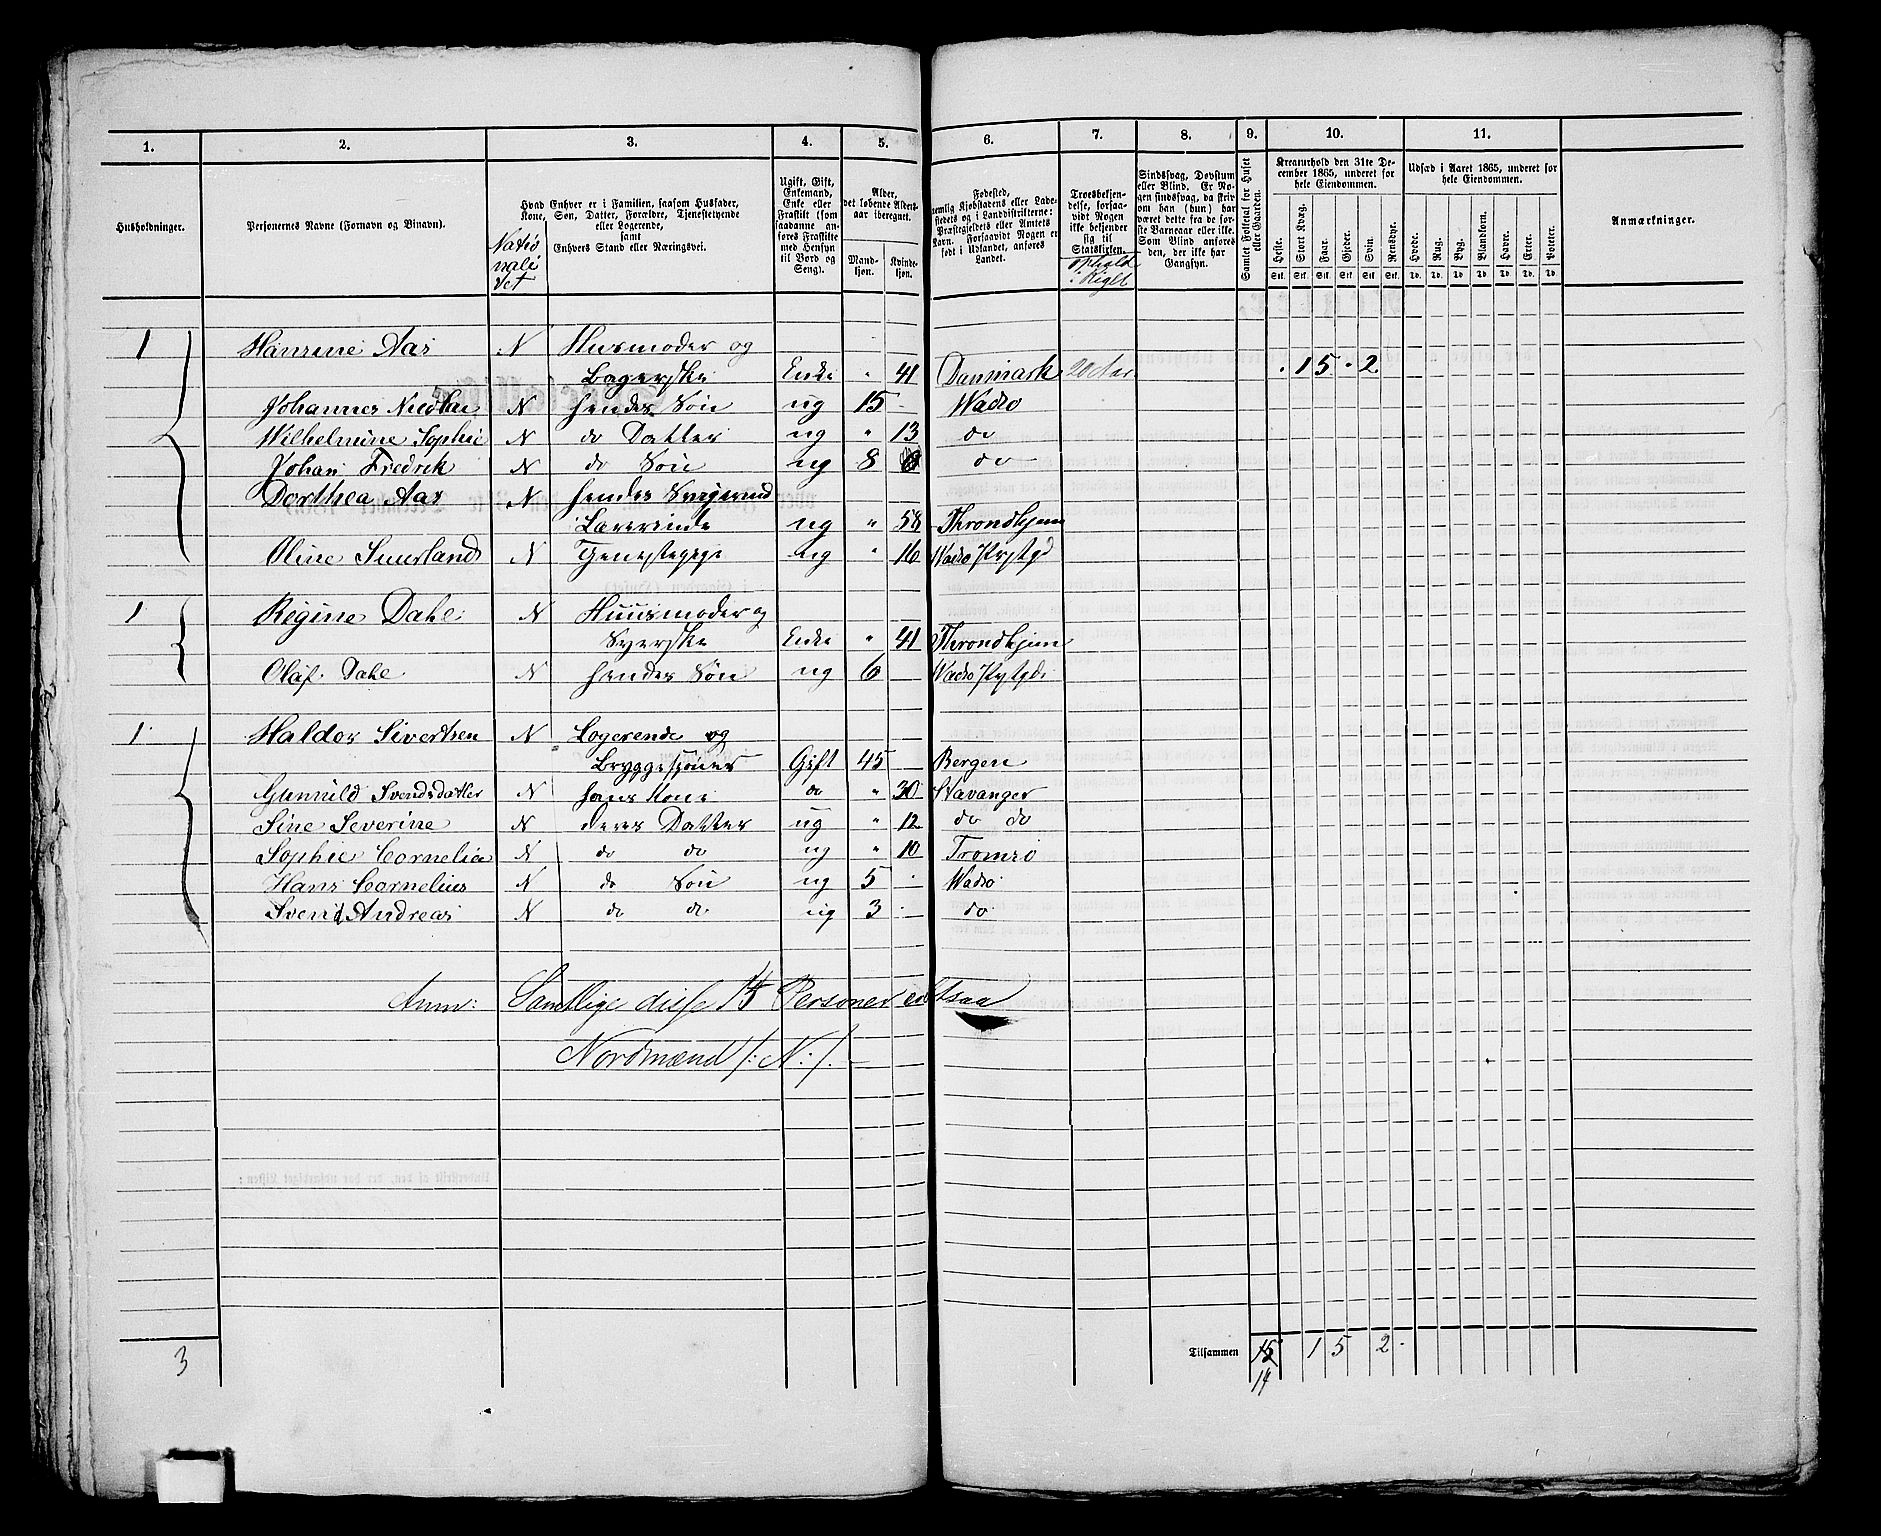 1. 2. 3. 4. 5. 6. 7. 8. 9. 10. 11.
Husholdninger.
Personernes Navne (Fornavn og Binavn).
Nationalitet
Hvad Enhver er i Familien, saasom Husfader, Kone, Søn, Datter, Forældre, Tjenestetyende eller Logerende, samt Enhvers Stand eller Næringsvei.
Ugift, Gift, Enkemand, Enke eller Fraskilt (som saadanne anføres Fraskilte med Hensyn til Bord og Seng).
Alder, det løbende Alders-aar iberegnet.
Mand-kjøn. Kvinde-kjøn.
Fødested, nemlig Kjøbstadens eller Ladestedets og i Landdistrikterne: Præstegjeldets eller Amtets Navn. Forsaavidt Nogen er født i Udlandet, anføres Landet.
Troesbekjendelse, forsaavidt Nogen ikke bekjender sig til Statskirken.
ophold i Riget
Sindssvag, Døvstum eller Blind. Er Nogen sindssvag, da skriv om han (hun) har været dette fra de første Barneaar eller ikke. Som Blind anføres den, der ikke har Gangsyn.
Samlet Folketal for Huset eller Gaarden.
Kreaturhold den 31te December 1865, underet for hele Eiendommen.
Heste. Stort Kvæg. Faar. Gjeder. Svin. Rensdyr.
Stk. Stk. Stk. Stk. Stk. Stk.
Udsæd i Aaret 1865, underet for hele Eiendommen.
Hvede. Rug. Byg. Blandkorn. Havre. Erter. Poteter.
Td. Td. Td. Td. Td. Td. Td.
Anmærkninger.
1 Hansine Aas N Husmoder og
Bagerske Enke " 41 Danmark 20 Aar . 1 5 . 2
Johannes Nicolai N hendes Søn ug 15 - Wadsø
Wilhelmine Sophie N do Datter ug " 13 do
Johan Fredrik N do Søn ug 8 do
Dorthea Aas N hendes Svigerind
Lærerinde ug " 58 Throndhjem
Oline Suurland N Tjenestepige ug " 16 Wadsø Prstgd
1 Regine Dahl N Huusmoder og
Syerske Enke " 41 Throndhjem
Olaf Dahl N hendes Søn ug 6 Wadsø Prstgd.
1 Haldor Sivertsen N Logerende og
Gift 45 Bergen
Gunnild Svendsdatter N hans Kone do " 30 Stavanger
Sine Severine N deres Datter ug " 12 do do
Sophie Cornelia N do do ug " 10 Tromsø
Hans Cornelius N do Søn ug 5 - Wadsø
Svend Andreas N do do ug 3 - do
Anm: Samtlige disse 14 Personer altsaa
Nordmænd /: N :/. —
3
Tilsammen 15 1 5 2
14